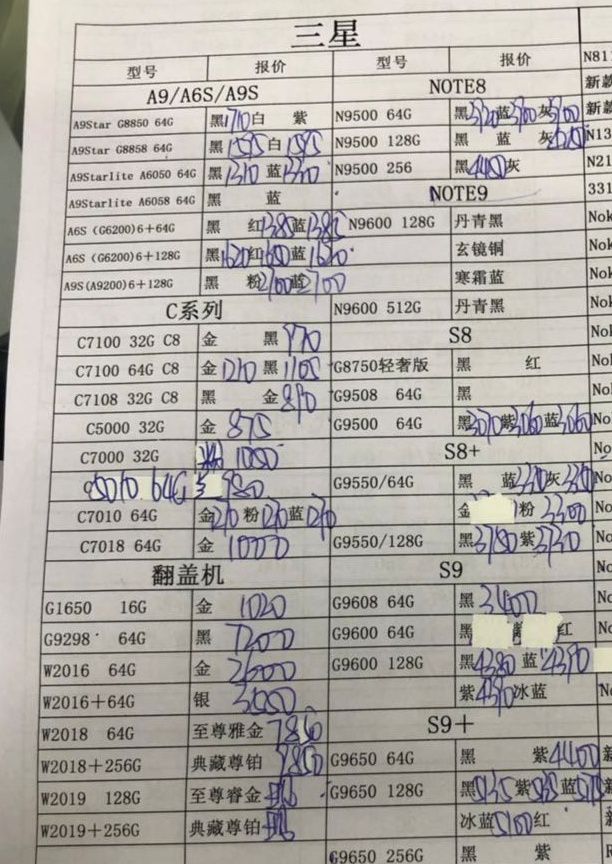 三星
型号 报价 型号 报价
A9/A6S/A9S NOTE8 新款
A9Star G8850 64G 黑1710白 紫 N9500 64G 黑3720蓝3700灰3700 新款
A9Star G8858 64G 黑 1595白1595 N9500 128G 黑 蓝 灰 N13
A9Starlite A6050 64G 黑1310 蓝1330 N9500 256 黑4450灰 N21
A9Starlite A6058 64G 黑 蓝 NOTE9 331
A6S (G6200)6+64G 黑 红1380蓝1385 N9600 128G 丹青黑 Nok
A6S (G6200)6+128G 黑1620红1600蓝 玄镜铜 Nok
A9S(A9200)6+128G 黑 粉2700蓝2700 寒霜蓝 Nok
C系列 N9600 512G 丹青黑 Nok
C7100 32G C8 金 黑970 S8 Nok
C7100 64G C8 金1210黑1105 G8750轻奢版 黑 红 Nok
C7108 32G C8 黑 金890 G9508 64G 黑 Nok
C5000 32G 金 875 G9500 64G 黑3070紫3060蓝3060 No
C7000 32G 1050 S8+ No
C5010 64G 980 G9550/64G 黑 蓝3310灰 No
C7010 64G 金1210粉1210蓝1210 金 粉 3300 No
C7018 64G 金 1000 G9550/128G 黑3780紫3730 No
翻盖机 S9 No
G1650 16G 金 1020 G9608 64G 黑3400 No
G9298 64G 黑 G9600 64G 黑 紫 红 No
W2016 64G 金 2600 G9600 128G 黑4380 蓝4390
W2016+64G 银 紫4390冰蓝 No
W2018 64G 至尊雅金 S9+
W2018+256G 典藏尊铂 7850 G9650 64G 黑 紫4400 新
W2019 128G 至尊睿金 G9650 128G 黑5135紫 蓝 新
W2019+256G 典藏尊铂 冰蓝5100红
G9650 256G 黑 紫